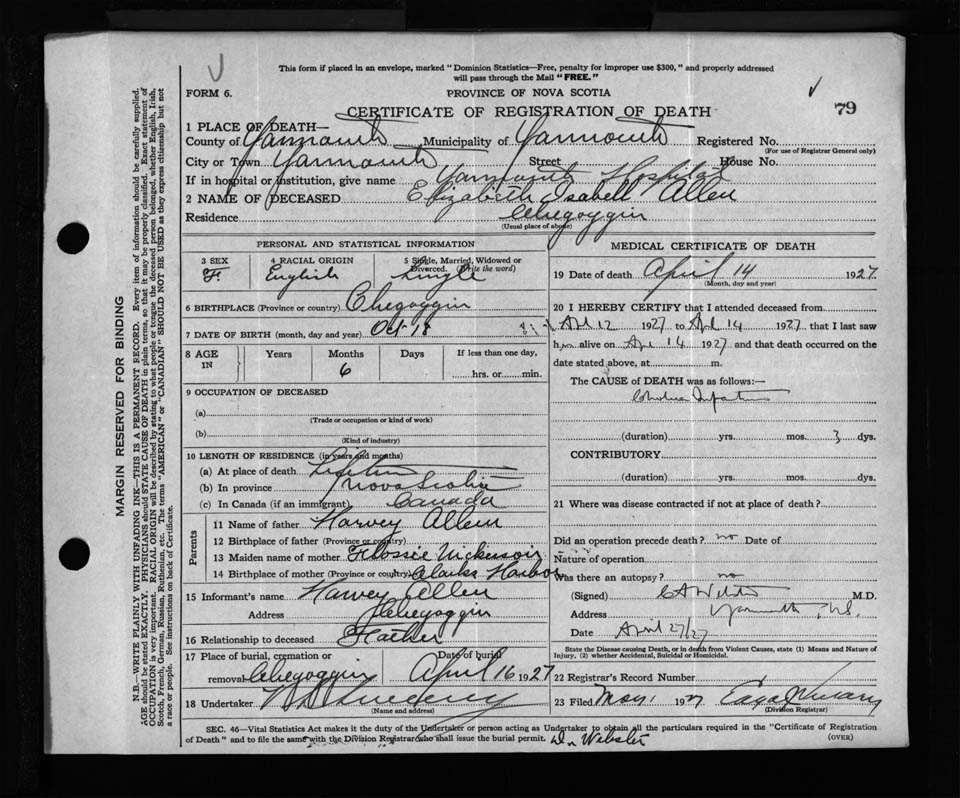 This form if placed in an envelope, marked "Dominion Statistics—Free, penalty for improper use $300," and properly addressed
will pass through the Mail "FREE."
FORM 6.
PROVINCE OF NOVA SCOTIA
CERTIFICATE OF REGISTRATION OF DEATH
79
1 PLACE OF DEATH—
County of Yarmouth Municipality of Yarmouth Registered No.
(For use of Registrar General only)
City or Town Yarmouth Street House No.
If in hospital or institution, give name Yarmouth Hospital
2 NAME OF DECEASED Elizabeth Isabell Allen
Residence Chegoggin
(Usual place of abode)
PERSONAL AND STATISTICAL INFORMATION
3 SEX 4 RACIAL ORIGIN 5 Single, Married, Widowed or
Divorced. (Write the word)
F. English Single
6 BIRTHPLACE (Province or country) Chegoggin
7 DATE OF BIRTH (month, day and year) Oct
8 AGE IN Years Months Days If less than one day,
6 hrs. or min.
9 OCCUPATION OF DECEASED
(a)
(Trade or occupation or kind of work)
(b)
(Kind of industry)
10 LENGTH OF RESIDENCE (in years and months)
(a) At place of death Lifetime
(b) In province Nova Scotia
(c) In Canada (if an immigrant) Canada
Parents
11 Name of father Harvey Allen
12 Birthplace of father (Province or country)
13 Maiden name of mother Flossie Nickerson
14 Birthplace of mother (Province or country) Clarks Harbor
15 Informant's name Harvey Allen
Address Chegoggin
16 Relationship to deceased Father
17 Place of burial, cremation or Date of burial
removal Chegoggin April 16 1927
18 Undertaker
(Name and address)
MEDICAL CERTIFICATE OF DEATH
19 Date of death April 14 1927
(Month, day and year)
20 I HEREBY CERTIFY that I attended deceased from
April 12 1927 to Apl 14 1927 that I last saw
h alive on Apr 14 1927 and that death occurred on the
date stated above, at m.
The CAUSE of DEATH was as follows:—
Cholera Infantum
(duration) yrs. mos. 3 dys.
CONTRIBUTORY
(duration) yrs. mos. dys.
21 Where was disease contracted if not at place of death?
Did an operation precede death? no Date of
Nature of operation
Was there an autopsy? no
(Signed) M.D.
Address Yarmouth N.S.
Date April 27/27
State the Disease causing Death, or in death from Violent Causes, state (1) Means and Nature of
Injury, (2) whether Accidental, Suicidal or Homicidal.
22 Registrar's Record Number
23 Filed May 1 1927
(Division Registrar)
SEC. 46—Vital Statistics Act makes it the duty of the Undertaker or person acting as Undertaker to obtain all the particulars required in the "Certificate of Registration
of Death" and to file the same with the Division Registrar who shall issue the burial permit. Dr Webster (OVER)
MARGIN RESERVED FOR BINDING
N.B.—WRITE PLAINLY WITH UNFADING INK—THIS IS A PERMANENT RECORD. Every item of information should be carefully supplied.
AGE should be stated EXACTLY. PHYSICIANS should STATE CAUSE OF DEATH in plain terms, so that it may be properly classified. Exact statement of
OCCUPATION is very important. RACIAL ORIGIN will be described by stating to what people or tongue the deceased person belonged, whether English, Irish,
Scotch, French, German, Russian, Ruthenian, etc. The terms "AMERICAN" or "CANADIAN" SHOULD NOT BE USED as they express citizenship but not
a race or people. See instructions on back of Certificate.